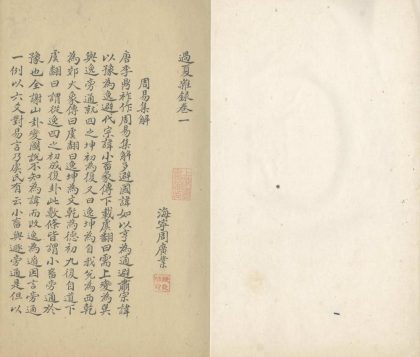 過夏雜錄卷一
海寧周廣業
周易集解
唐李鼎祚作周易集解多避國諱如以亨為通避肅宗諱
以豫為逸避代宗諱小畜象傳下載虞翻曰需上變為巽
與逸旁通豫四之坤初為復又曰逸坤為自我兑為西乾
為郊大象傳曰虞翻曰逸坤為文乾為德初九復自道下
虞翻曰謂從逸四之初成復卦此數條皆謂小畜旁通於
豫也全謝山卦變圖說不知為諱而改逸為遁因言旁通
一例以六爻對易言乃虞氏有云小畜與遯旁通是但以